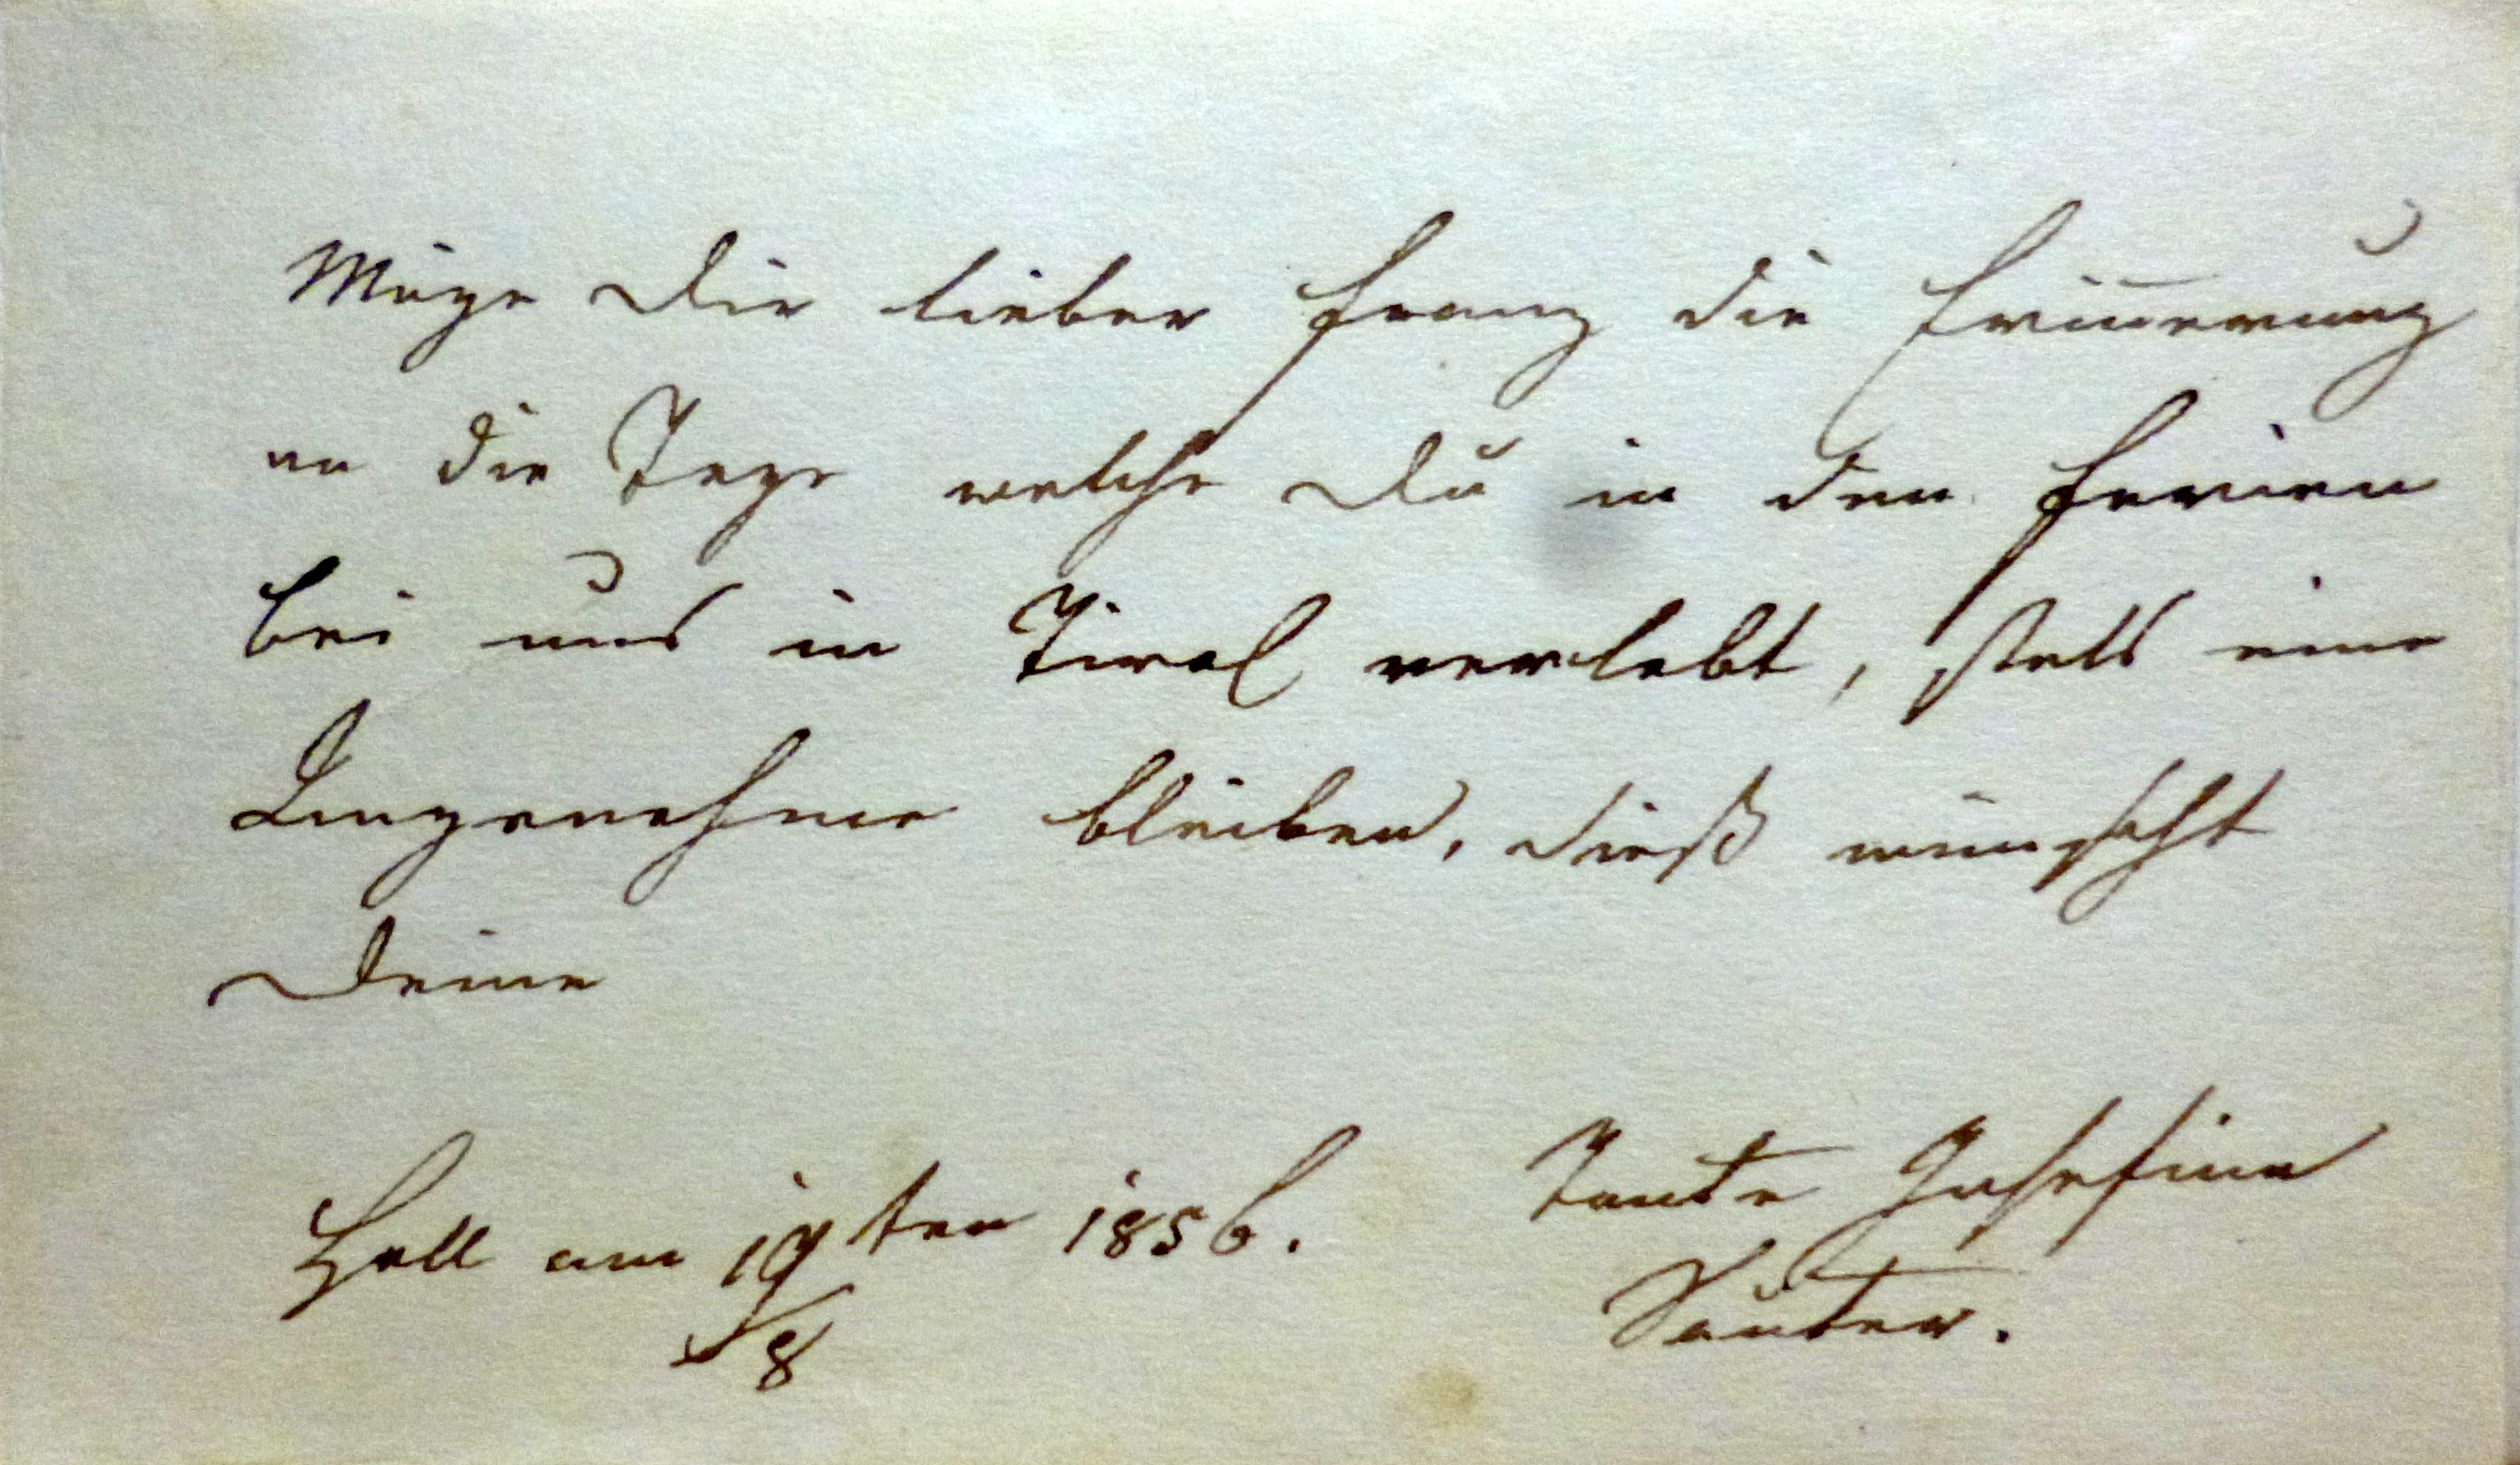 Möge Dir lieber Franz die Erin̄erung
an die Tage welche Du in den Ferien
bei uns in Tirol verlebt, stets eine
Angenehme bleiben, dieß wünscht
Deine
Tante Josefine
Hall am 19ten/8 1856.
Sauter.